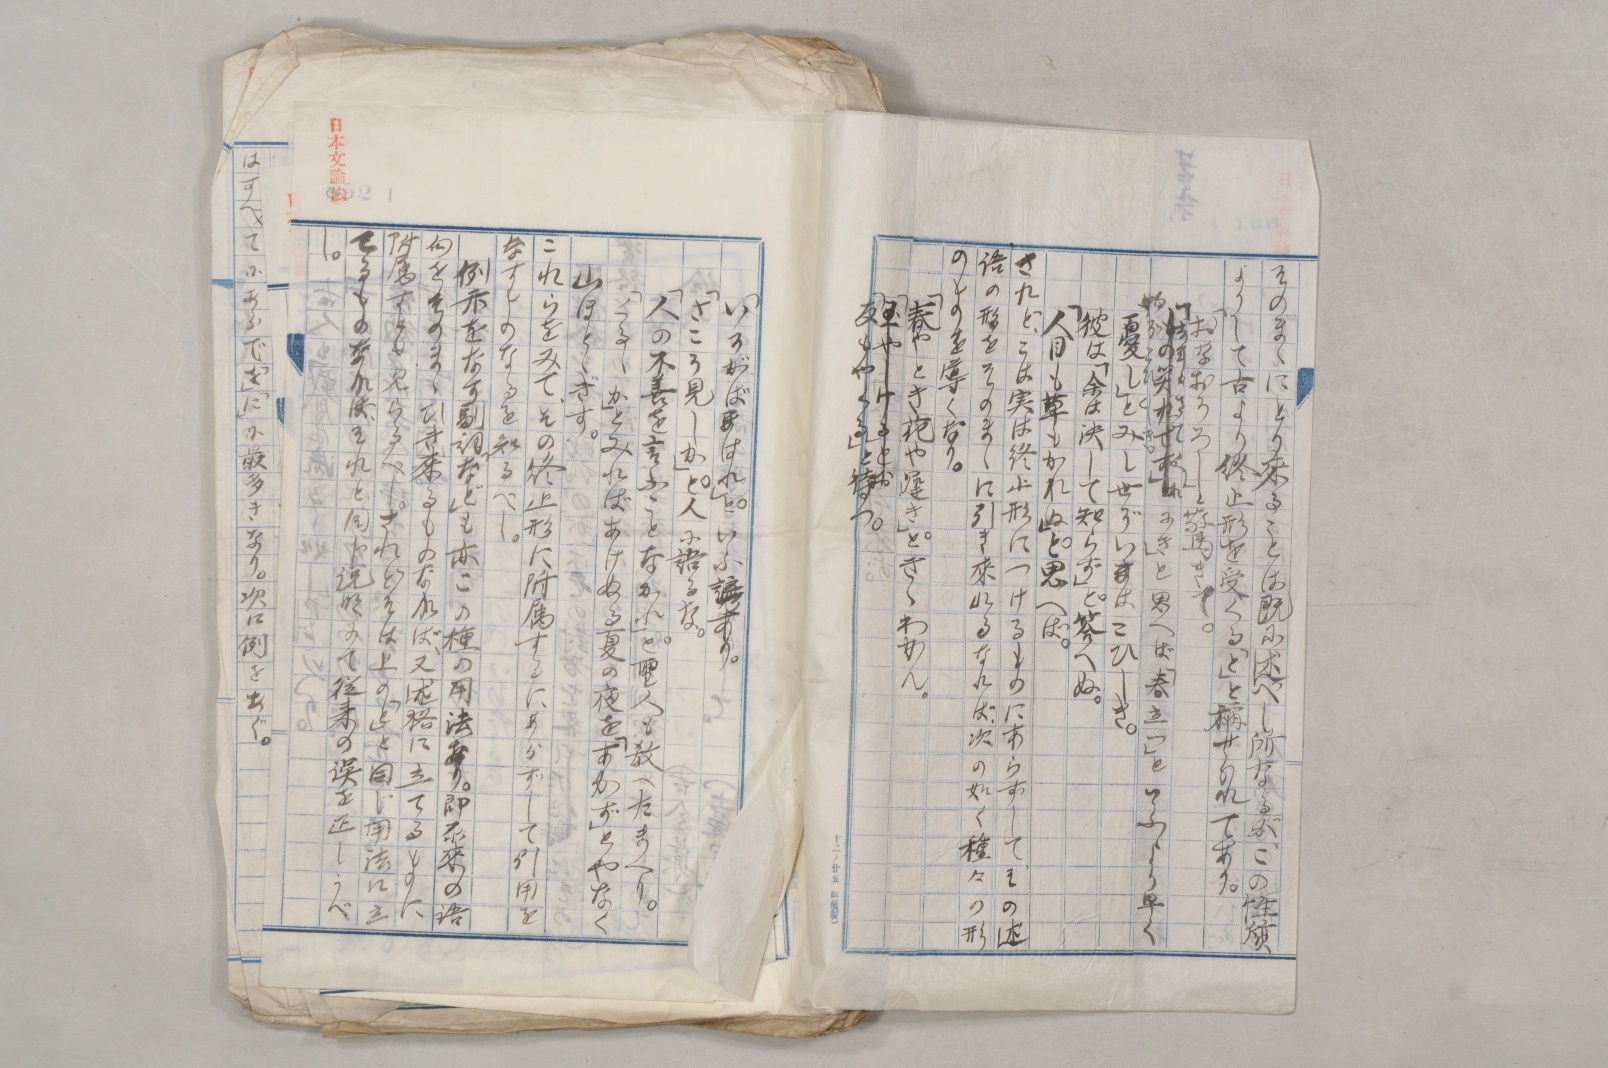 そのまゝにとり来ることは既に述べし所なるが、この性質
よりして古より終止形を受くる「と」と稱せられてあり。
「あなおそろし」と驚きて。
と思へば「春立つ」といふより早く
憂し」とみし世ぞいまはこひしき。
彼は「余は決して知らず」と答へぬ。
「人目も草もかれぬ」と思へば。
されど、こは実は終止形につけるものにあらずしてその述
語の形をそのまゝに引き来れるなれば、次の如く種々の形
のものを導くなり。
「春やとき花や遅き」ときゝわかん。
友もやくる」と待つ。
日本文論法
いそがばまはれ」といふ諺あり。
「さこそ見しか」と人に語るな。
「人の不善を言ふことなかれ」と聖人も教へたまへり。
「くるゝかとみればあけぬる夏の夜を「あかず」とやなく
山ほとゝぎす。
これらをみてその終止形に附属するにあらずして引用を
なすものなるを知るべし。
例示をなす副詞「など」も亦この種の用法あり。即本来の語
句をそのまゝひき来るものなれば、又述格に立てるものに
附属すとも見らるべし。されどそは上の「と」と同じ用法に立
てるものなれば、それと同じ説明にて従来の誤を正しうべ
し。
はすべてにあらで「を」「に」に最多きなり。次に例をあぐ。